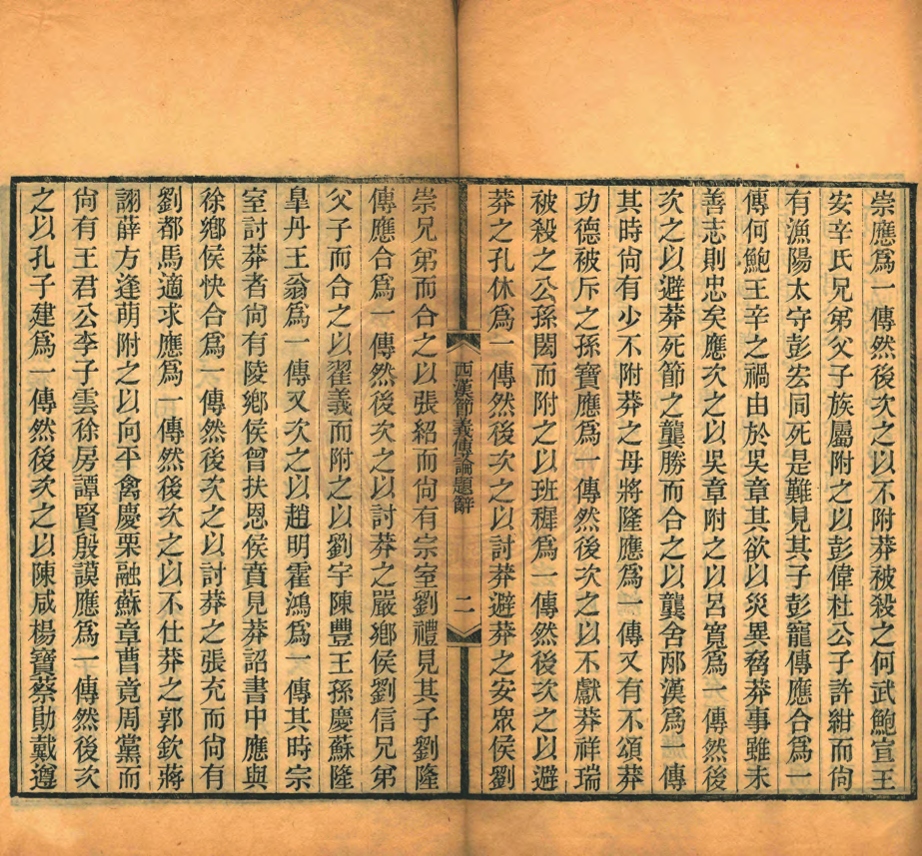 崇應爲一傳然後次之以不附莽被殺之何武鮑宣王
安辛氏兄弟父子族屬附之以彭偉杜公子許紺而尙
有漁陽太守彭宏同死是難見其子彭寵傳應合爲一
傳何鮑王辛之禍由於吳章其欲以災異脅莽事雖未
善志則忠矣應次之以吳章附之以呂寬爲一傳然後
次之以避莽死節之龔勝而合之以龔舍邴漢爲一傳
其時尙有少不附莽之毋將隆應爲一傳又有不頌莽
功德被斥之孫寶應爲一傳然後次之以不獻莽祥瑞
被殺之公孫閎而附之以班穉爲一傳然後次之以避
莽之孔休爲一傳然後次之以討莽避莽之安眾侯劉
西漢節義傳論題辭 二
崇兄弟而合之以張紹而尙有宗室劉禮見其子劉隆
傳應合爲一傳然後次之以討莽之嚴鄕侯劉信兄弟
父子而合之以翟義而附之以劉宇陳豐王孫慶蘇隆
臯丹王翁爲一傳又次之以趙明霍鴻爲一傳其時宗
室討莽者尙有陵鄕侯曾扶恩侯賁見莽詔書中應與
徐鄕侯快合爲一傳然後次之以討莽之張充而尙有
劉都馬適求應爲一傳然後次之以不仕莽之郭欽蔣
詡薛方逄萌附之以向平禽慶栗融蘇章曹竟周黨而
尙有王君公李子雲徐房譚賢殷謨應爲一傳然後次
之以孔子建爲一傳然後次之以陳咸楊寶蔡勛戴遵